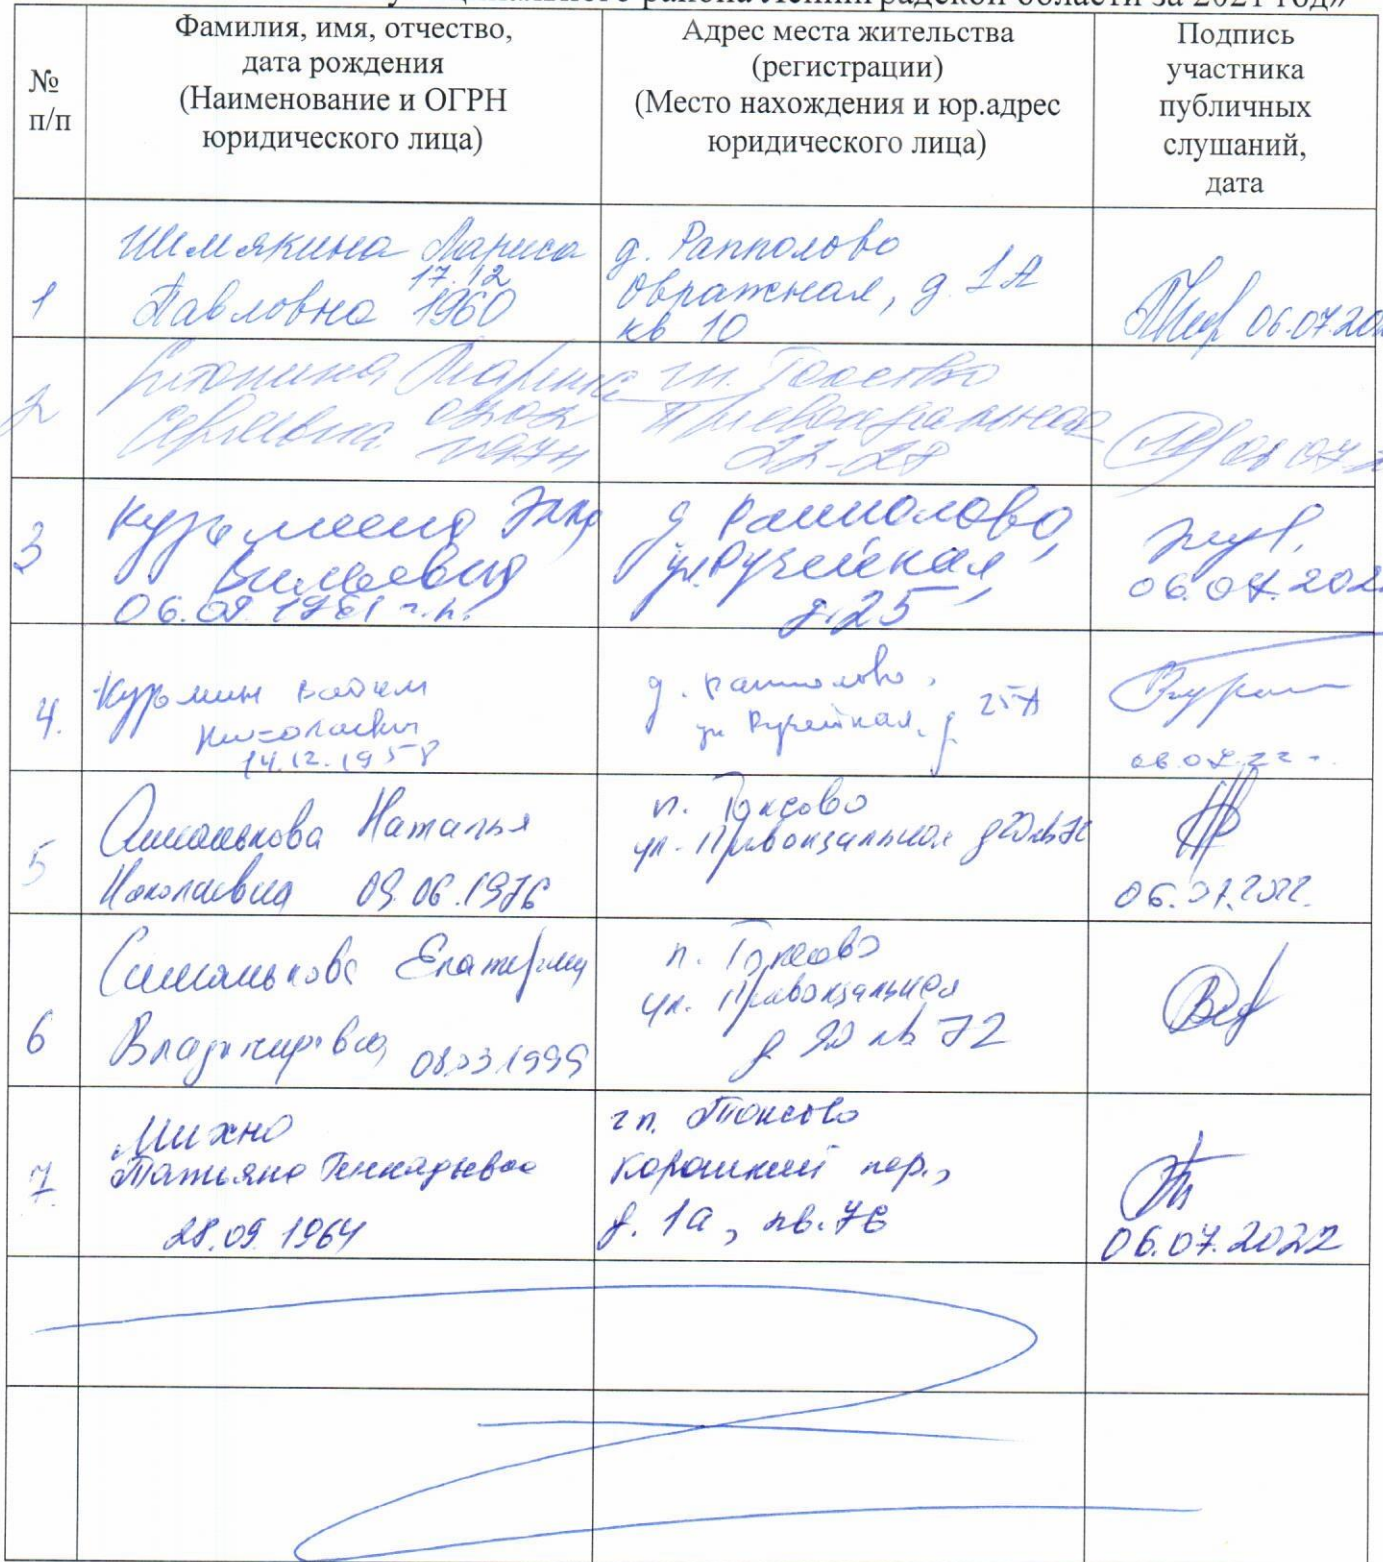 района Ленинградской области за 2021 год»
№
п/п
Фамилия, имя, отчество,
дата рождения
(Наименование и ОГРН
юридического лица)
Адрес места жительства
(регистрации)
(Место нахождения и юр.адрес
юридического лица)
Подпись
участника
публичных
слушаний,
дата
1
Шемякина Лариса
17.12
Павловна 1960
д. Рапполово
Овражная, д. 1А
кв 10
06.07.20
2
Марина
Сергеевна
гп. Токсово
Привокзальная
22-27
3
Кузьмина
Вильевна
д. Рапполово,
ул. Ручейная,
д. 25
06.07.202
4.
Кузьмин Вадим
Николаевич
14.12.1958
д. Рапполово,
ул Ручейная, д. 25А
06.07.22 г.
5
Симанькова Наталья
Николаевна 09.06.1976
п. Токсово
ул. Привокзальная д20кв72
06.07.2022.
6
Симанькова Екатерина
Владимировна 08.03.1999
п. Токсово
ул. Привокзальная
д 20 кв 72
7
Михно
Татьяна Геннадьевна
28.09.1964
гп. Токсово
Короткий пер.,
д. 1а, кв.76
06.07.2022